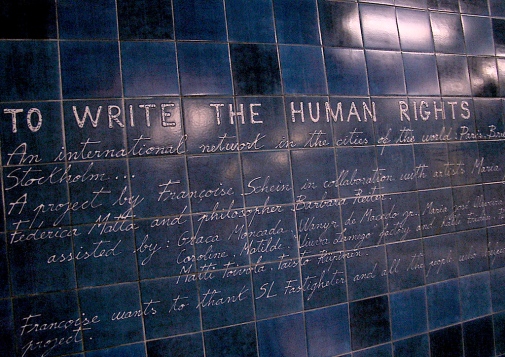 TO WRITE THE HUMAN RIGHTS
An international network in the cities of the world: Paris,
Stockholm...
A project by Françoise Schein in collaboration with artists Maria
Federica Matta and philosopher Barbara Reiter.
assisted by: Graca Moncada, Wanyr de Macedo jr., Maria José
Caroline, Mathilde, Viuva Lamego factory and
Matti Toivola, Taisto
Françoise wants to thank SL Fastigheter and all the people who
project.